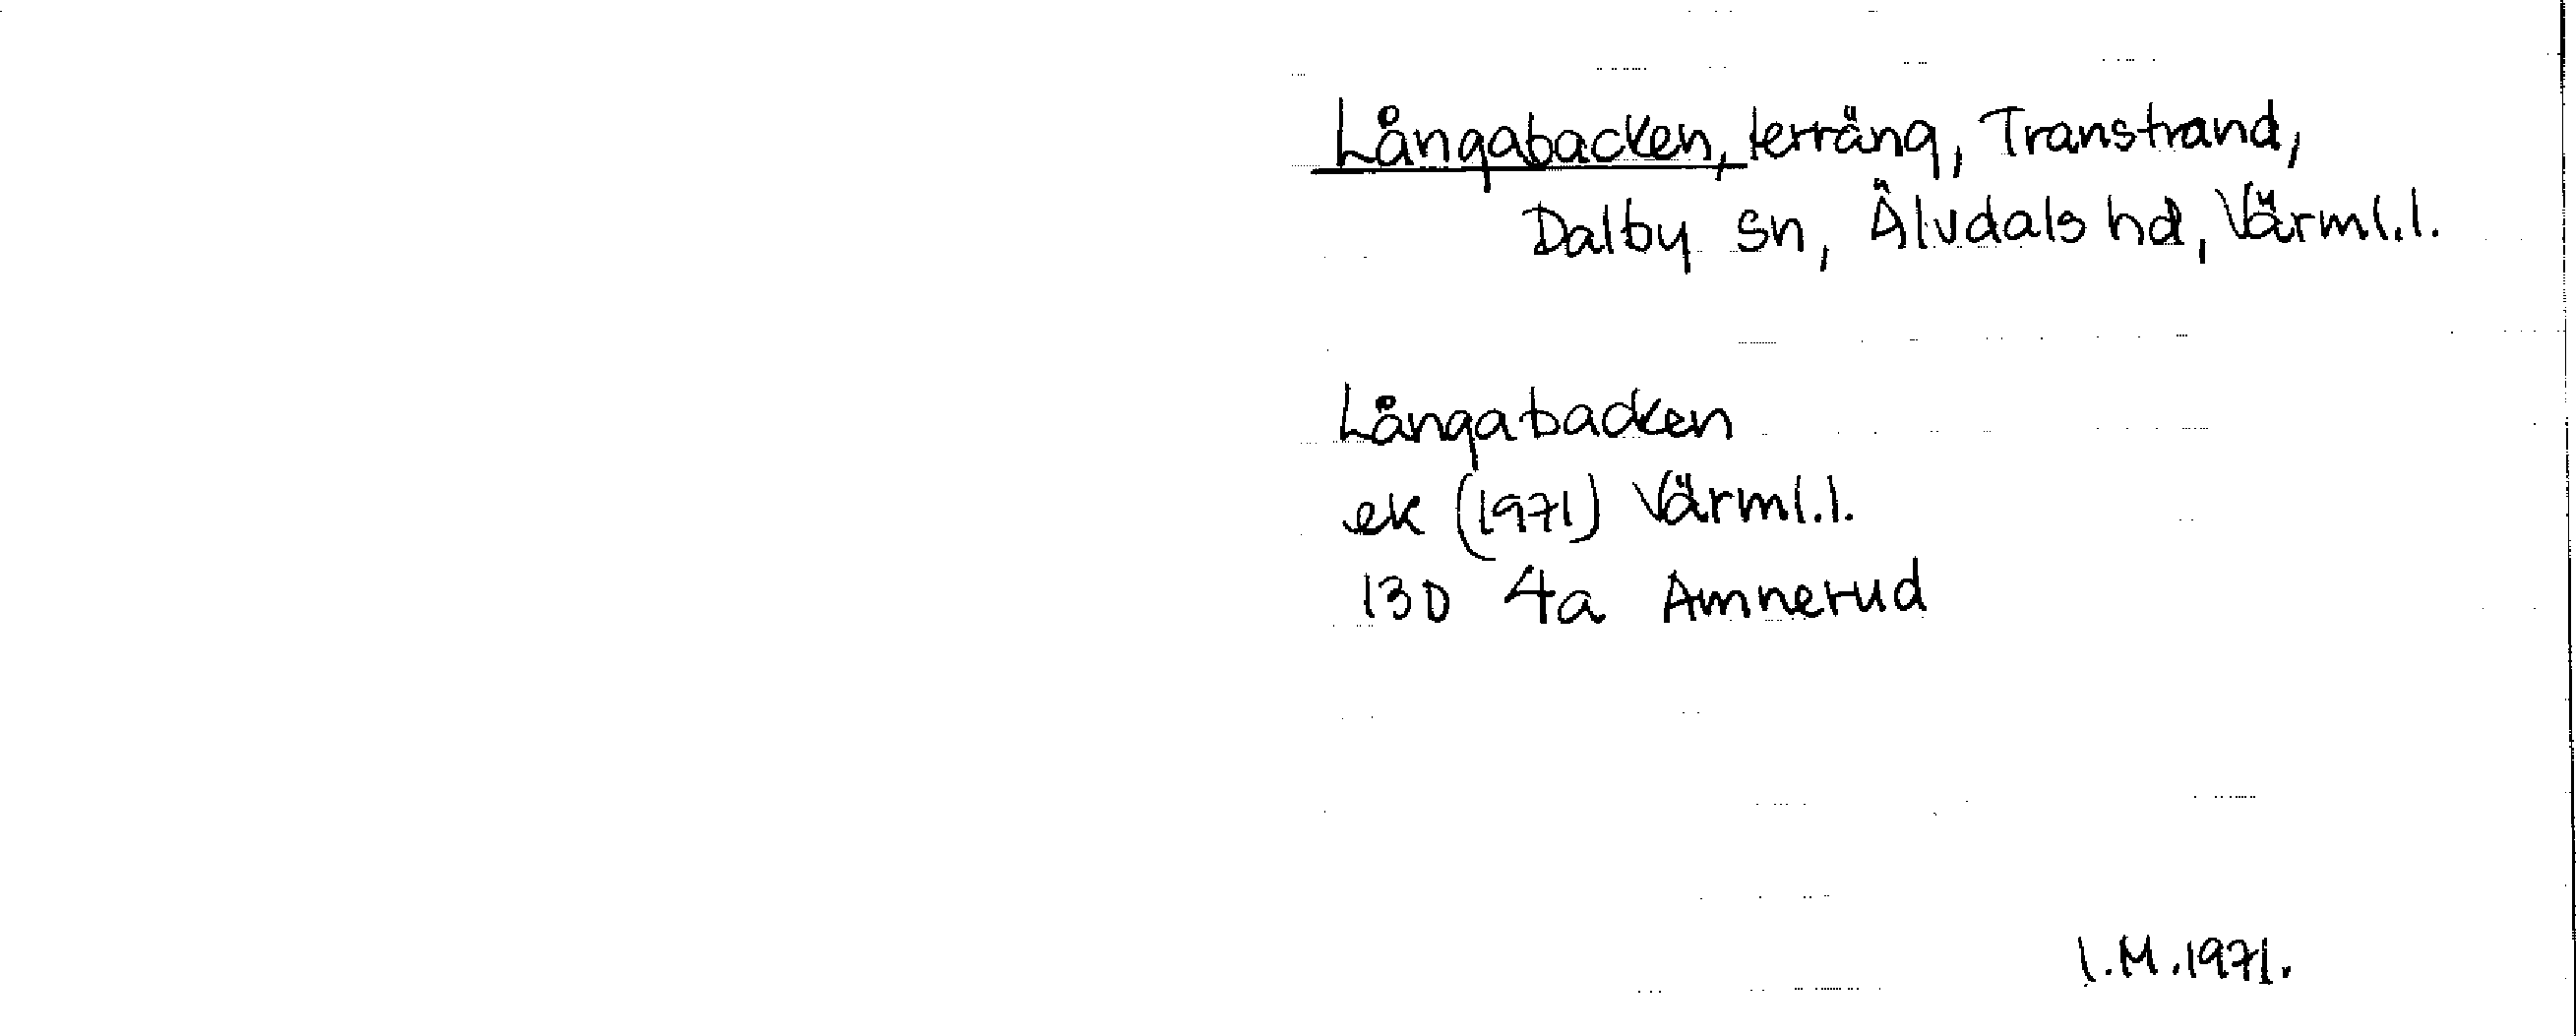 Långabacken, terräng, Transtrand,
Dalby sn, Älvdals hd, Värml.l.
Långabacken
ek (1971) Värml.l.
13D 4a Amnerud
I.M.1971.